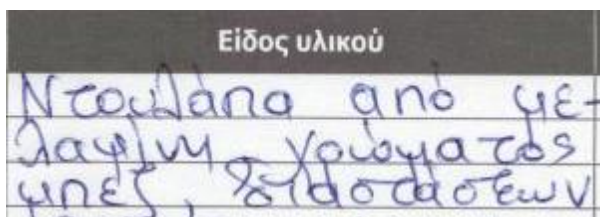 Είδος υλικού
Ντουλάπα από με-
λαμίνη χρώματος
μπεζ, διαστάσεων